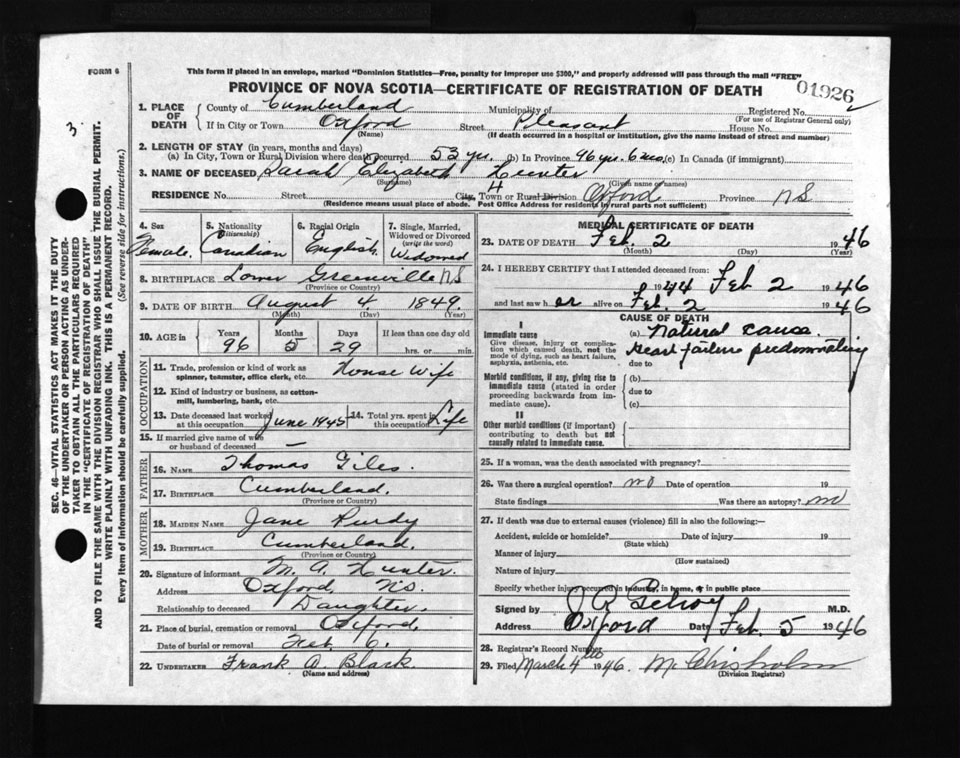 FORM 6
This form if placed in an envelope, marked "Dominion Statistics—Free, penalty for improper use $300," and properly addressed will pass through the mail "FREE"
01926
PROVINCE OF NOVA SCOTIA—CERTIFICATE OF REGISTRATION OF DEATH
1. PLACE OF DEATH
County of Cumberland Municipality of Registered No.
(For use of Registrar General only)
If in City or Town Oxford Street Pleasant House No.
(Name) (If death occurred in a hospital or institution, give the name instead of street and number)
2. LENGTH OF STAY (in years, months and days)
(a) In City, Town or Rural Division where death occurred 53 yrs. (b) In Province 96 yrs. 6 mo. (c) In Canada (if immigrant)
3. NAME OF DECEASED Sarah Elizabeth Hunter
(Surname) (Given name or names)
RESIDENCE No. Street City, Town or Rural Division 4 Oxford Province NS
(Residence means usual place of abode. Post Office Address for residents in rural parts not sufficient)
4. Sex 5. Nationality (Citizenship) 6. Racial Origin 7. Single, Married, Widowed or Divorced (write the word)
Female. Canadian English. Widowed
8. BIRTHPLACE Lower Greenville NS
(Province or Country)
9. DATE OF BIRTH August 4 1849
(Month) (Day) (Year)
10. AGE in Years Months Days If less than one day old
96 5 29 hrs. or min.
OCCUPATION
11. Trade, profession or kind of work as spinner, teamster, office clerk, etc. House Wife
12. Kind of industry or business, as cotton-mill, lumbering, bank, etc.
13. Date deceased last worked at this occupation June 1945 14. Total yrs. spent in this occupation Life
15. If married give name of wife or husband of deceased —
FATHER
16. NAME Thomas Giles.
17. BIRTHPLACE Cumberland.
(Province or Country)
MOTHER
18. MAIDEN NAME Jane Purdy
19. BIRTHPLACE Cumberland.
(Province or Country)
20. Signature of informant M. A. Hunter.
Address Oxford, N.S.
Relationship to deceased Daughter.
21. Place of burial, cremation or removal Oxford.
Date of burial or removal Feb 6.
22. UNDERTAKER Frank A. Black
(Name and address)
MEDICAL CERTIFICATE OF DEATH
23. DATE OF DEATH Feb. 2 1946
(Month) (Day) (Year)
24. I HEREBY CERTIFY that I attended deceased from:
1944 Feb 2 1946
and last saw her alive on Feb. 2 1946
CAUSE OF DEATH
I
Immediate cause (a) Natural cause.
Give disease, injury or complication which caused death, not the mode of dying, such as heart failure, asphyxia, asthenia, etc.
Heart failure predominating
due to
Morbid conditions, if any, giving rise to immediate cause (stated in order proceeding backwards from immediate cause).
(b)
due to
(c)
II
Other morbid conditions (if important) contributing to death but not causally related to immediate cause.
25. If a woman, was the death associated with pregnancy?
26. Was there a surgical operation? no Date of operation 19
State findings Was there an autopsy? no
27. If death was due to external causes (violence) fill in also the following:—
Accident, suicide or homicide? Date of injury 19
(State which)
Manner of injury
(How sustained)
Nature of injury
Specify whether injury occurred in industry, in home, or in public place
Signed by J R M.D.
Address Oxford Date Feb. 5 1946
28. Registrar's Record Number
29. Filed March 4th 1946. M Chisholm
(Division Registrar)
3.
SEC. 46—VITAL STATISTICS ACT MAKES IT THE DUTY
OF THE UNDERTAKER OR PERSON ACTING AS UNDER-
TAKER TO OBTAIN ALL THE PARTICULARS REQUIRED
IN THE "CERTIFICATE OF REGISTRATION OF DEATH"
AND TO FILE THE SAME WITH THE DIVISION REGISTRAR WHO SHALL ISSUE THE BURIAL PERMIT.
WRITE PLAINLY WITH UNFADING INK. THIS IS A PERMANENT RECORD.
Every item of information should be carefully supplied. (See reverse side for instructions.)